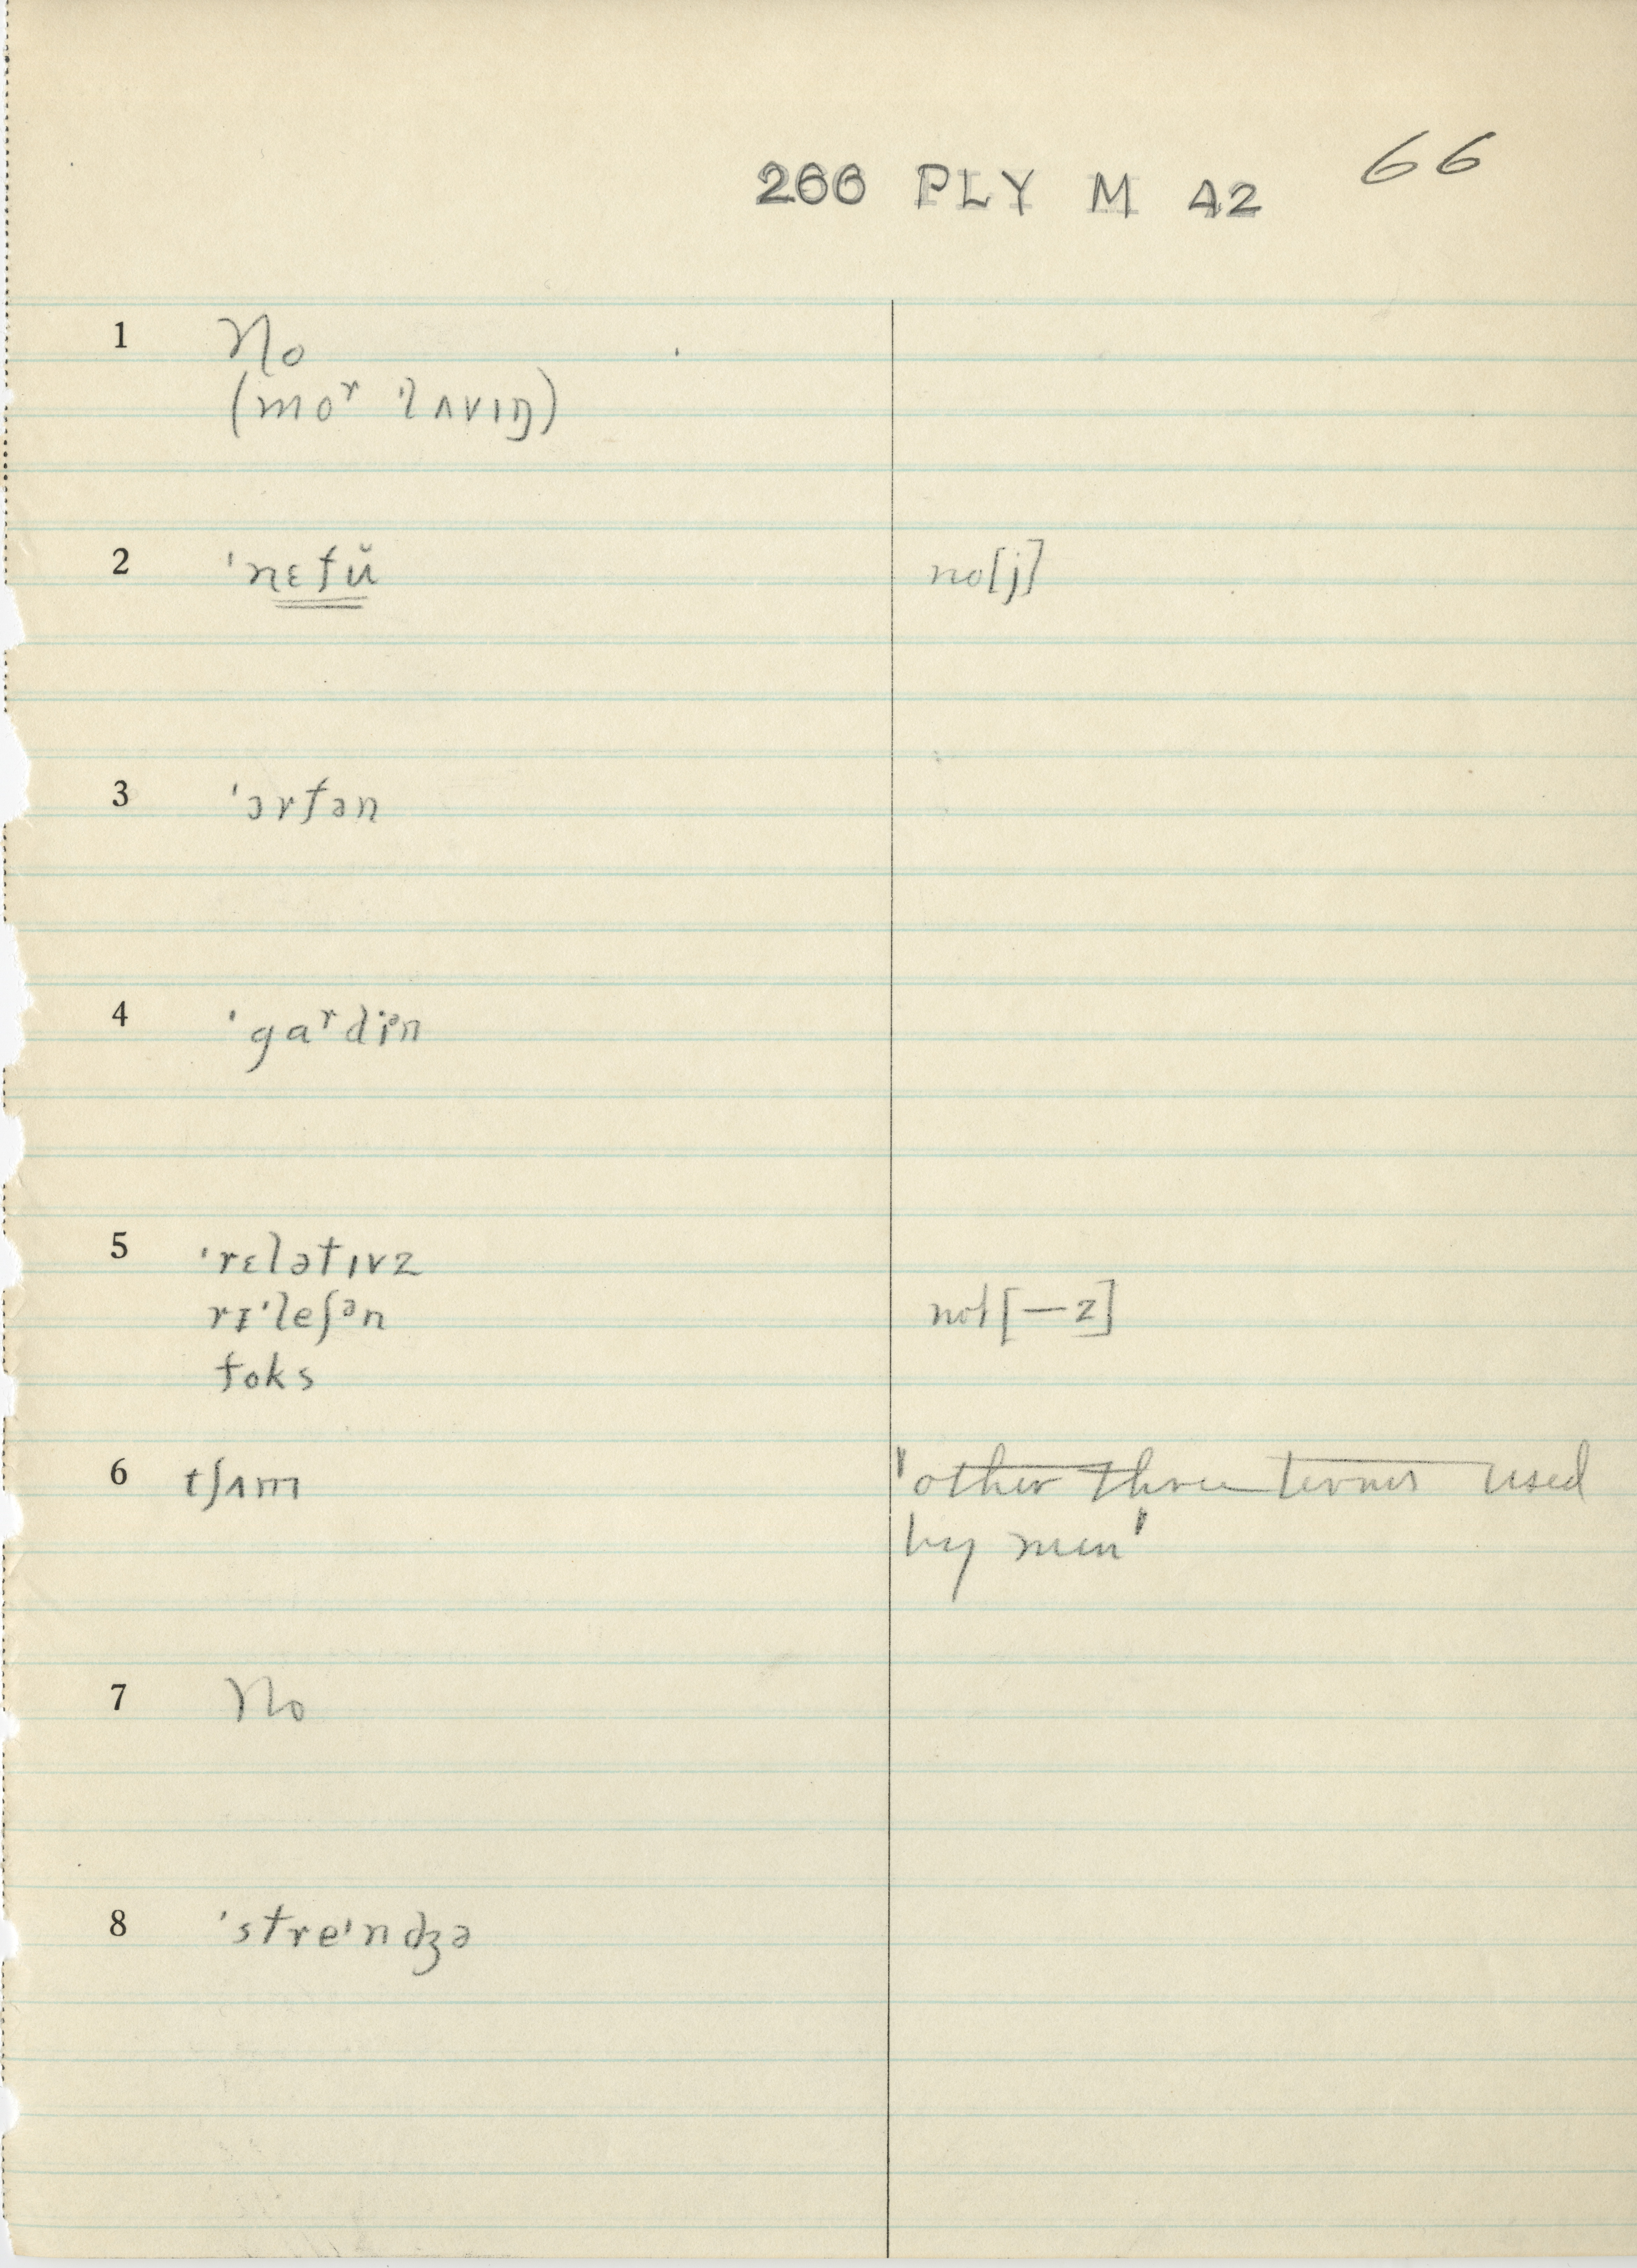 266 PLY M A2 66
1 No
(moʳ ˈlʌvɪŋ)
2 ˈnɛfŭ no[j]
3 ˈɔrfən
4 ˈgaʳdiᵊn
5 ˈrɛlətɪvz
rɪˈleʃᵊn not[—z]
foks
6 tʃʌm 'other three terms used
by men'
7 No
8 ˈstreᶦndʒə